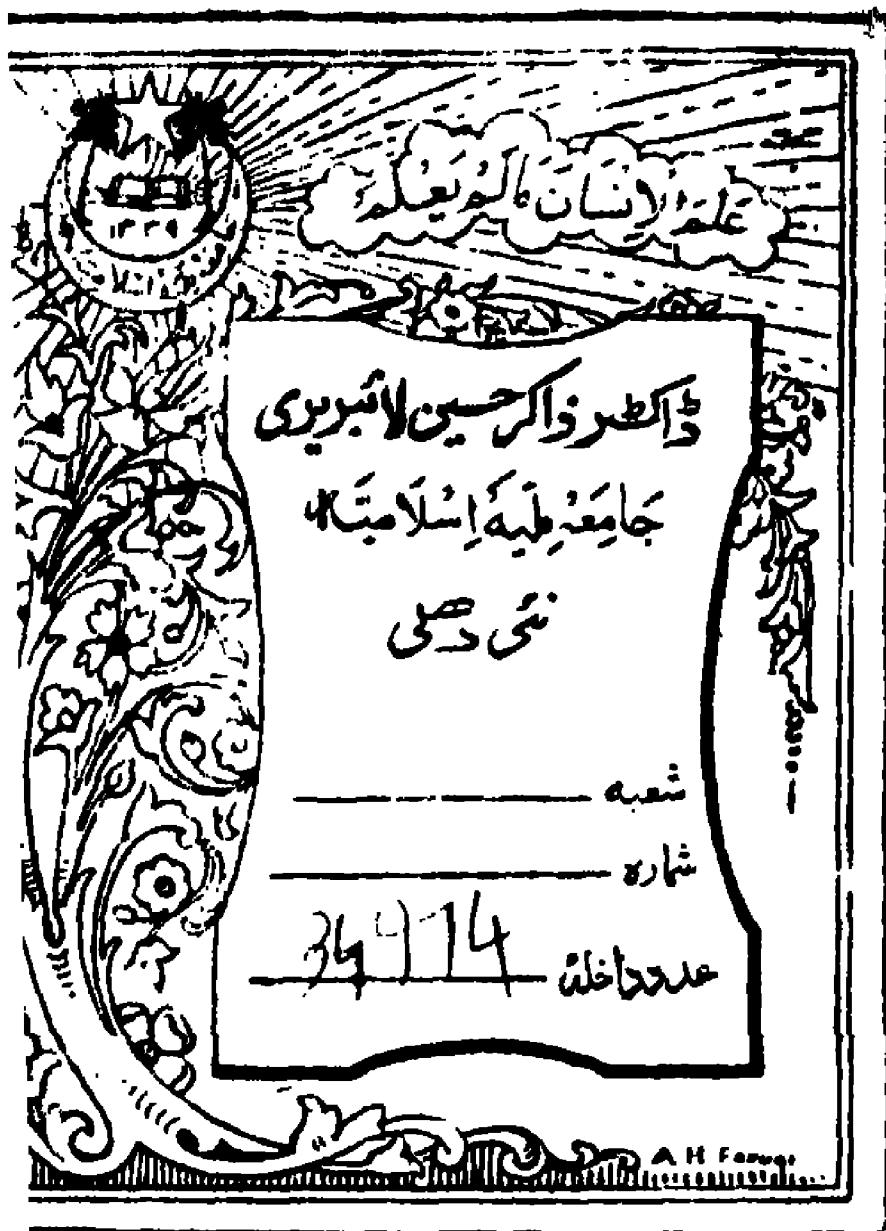 عَلَّمَ الْاِنْسَانَ مَالَمْ يَعْلَمْ
۱۳۳۹
ڈاکٹر ذاکر حسین لائبریری
جَامِعَہ مِلّیَہ اِسْلَامیَہ
نئی دھلی
شعبہ
شمارہ
عدد داخلہ 34914
A H